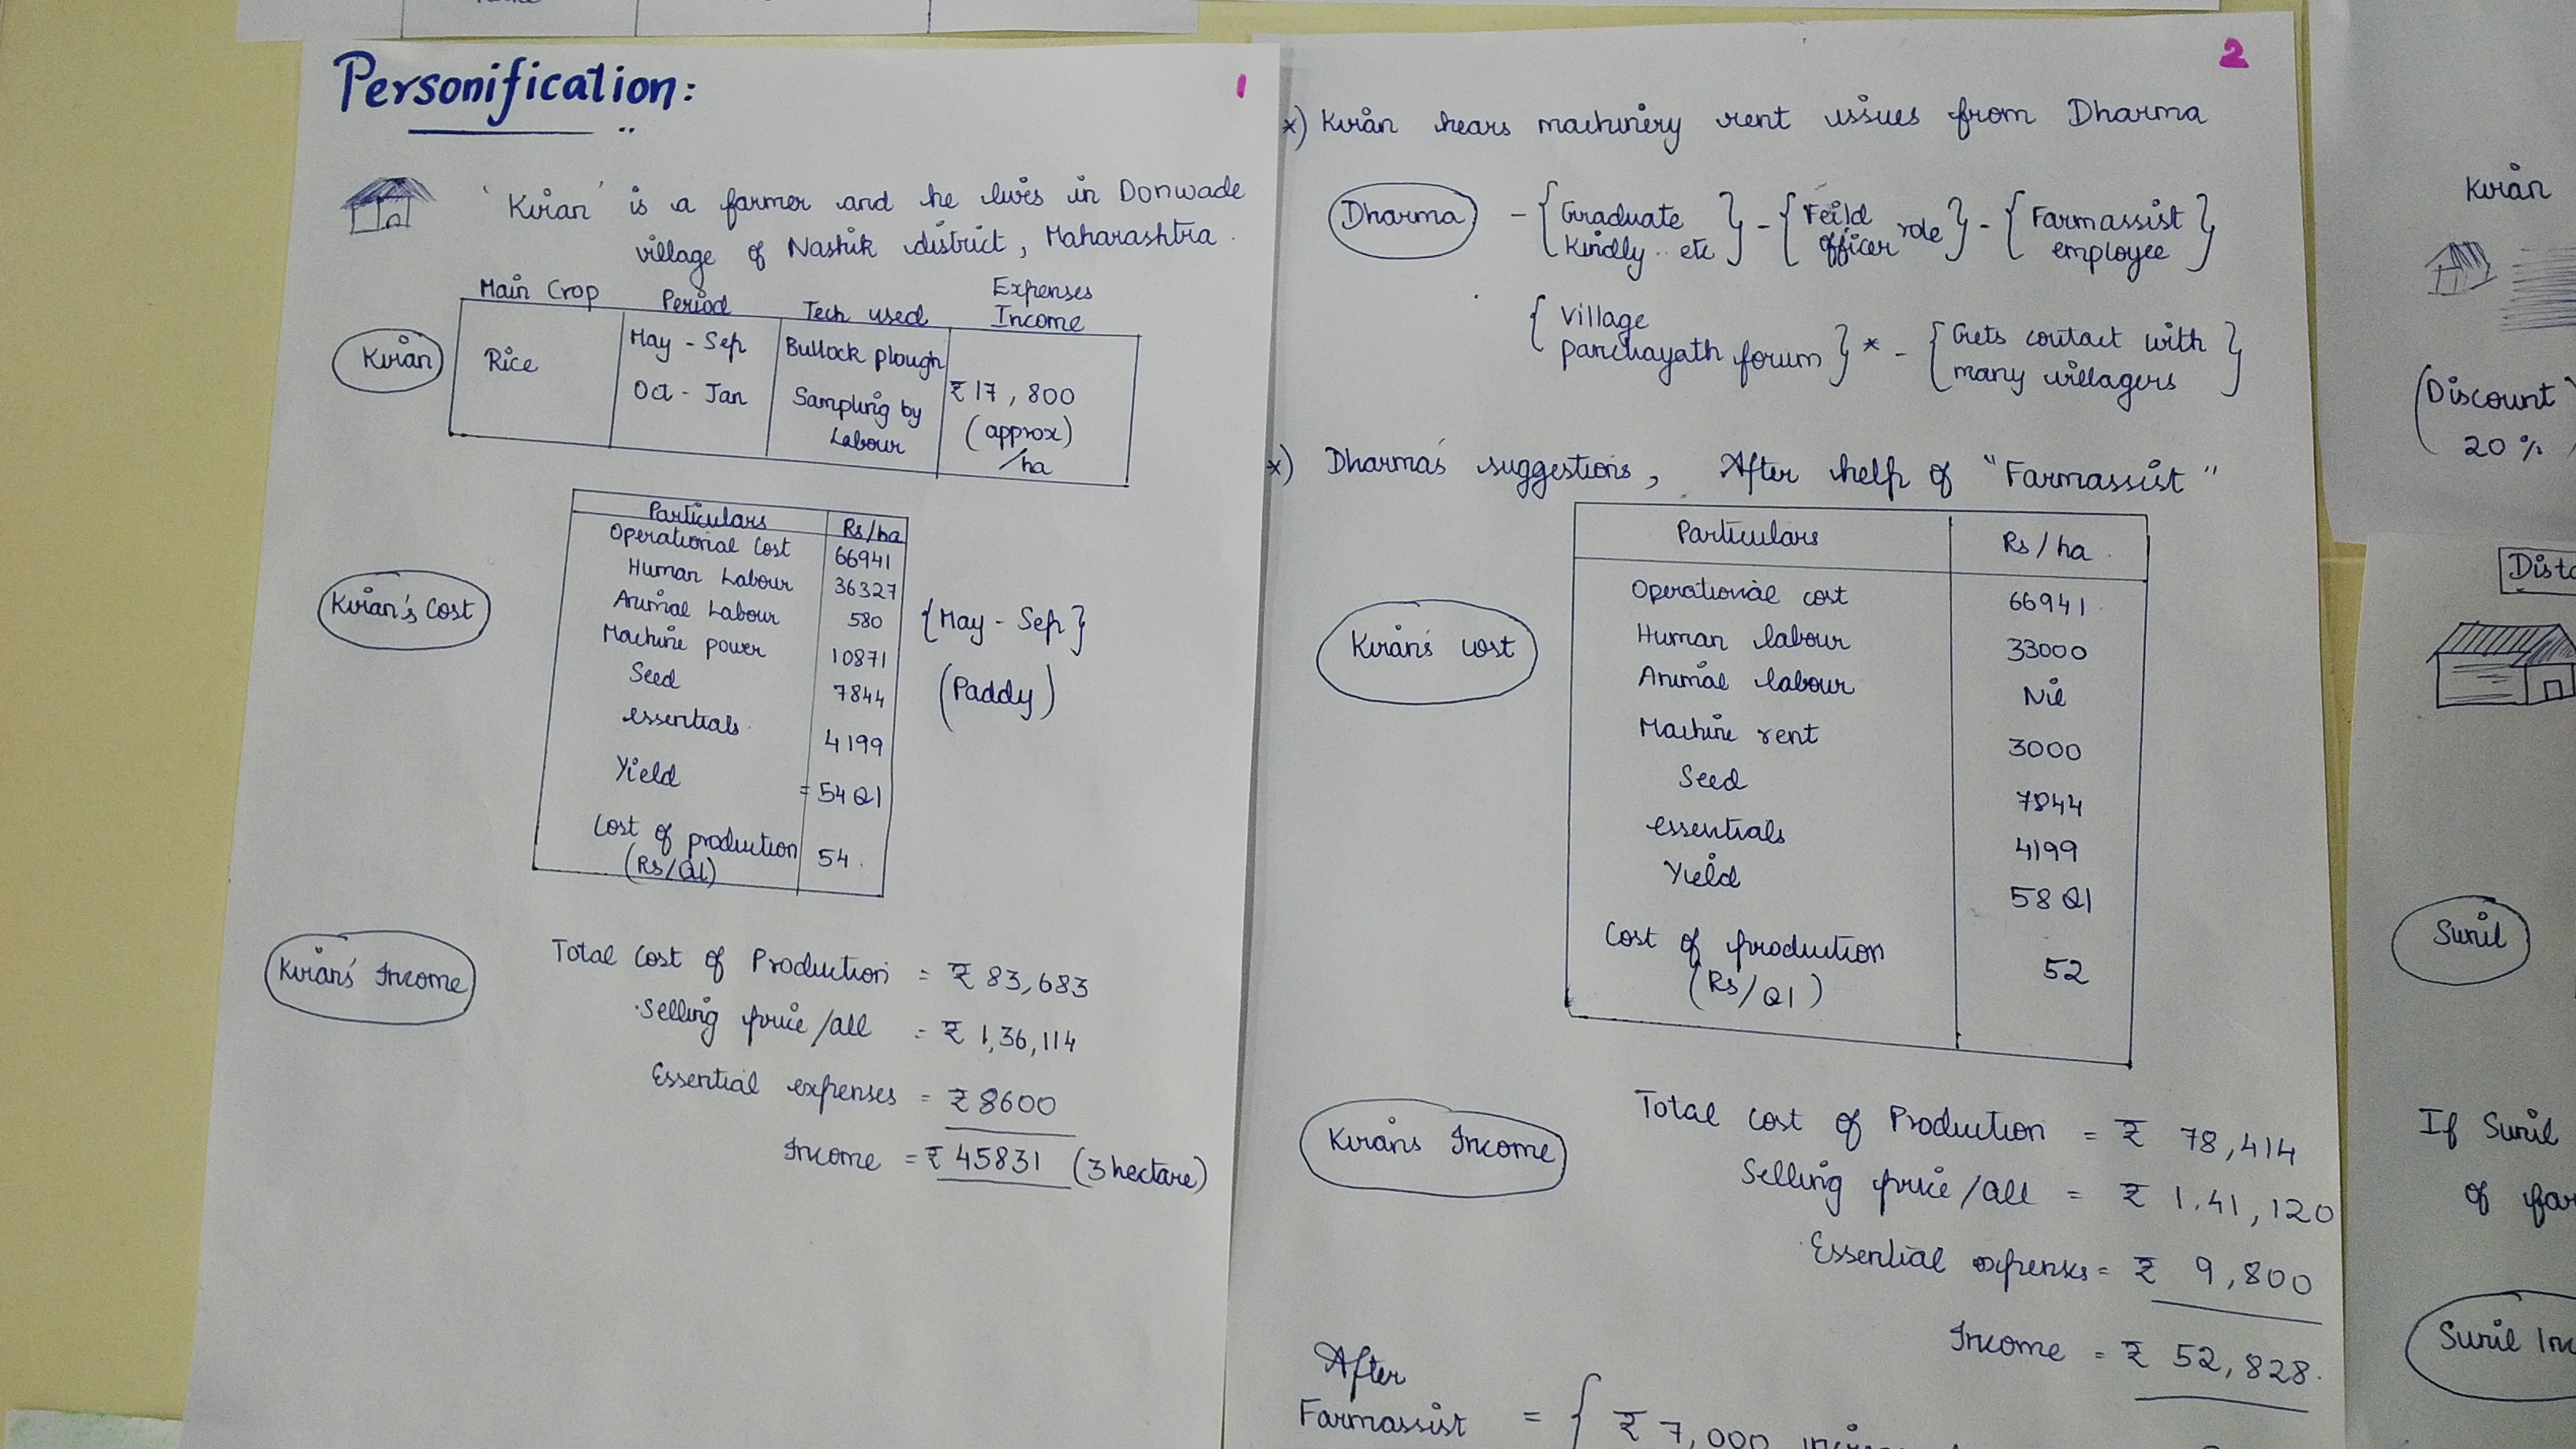 Personification:
1
'Kiran' is a farmer and he lives in Donwade
village of Nashik district, Maharashtra.
Main Crop Period Tech used Expenses
Income
Kiran
Rice
May - Sep
Oct - Jan
Bullock plough
Sampling by
Labour
₹ 17,800
(approx)
/ha
Kiran's Cost
Particulars Rs/ha
Operational Cost 66941
Human Labour 36327
Animal Labour 580
Machine power 10871
Seed 7844
essentials. 4199
Yield = 54 Ql
Cost of production 54.
(Rs/Ql)
{May - Sep}
(Paddy)
Kiran's Income
Total Cost of Production = ₹ 83,683
Selling price/all = ₹ 1,36,114
Essential expenses = ₹ 8600
Income = ₹ 45831 (3 hectare)
2
*) Kiran hears machinery rent issues from Dharma
Dharma - {Graduate Kindly.. etc} - {Feild officer role} - {Farmassist employee}
{Village panchayath forum} * - {Gets contact with many villagers}
*) Dharma's suggestions, After help of "Farmassist"
Kiran's cost
Particulars Rs/ha.
Operational cost 66941.
Human labour 33000
Animal labour Nil
Machine rent 3000
Seed 7844
essentials 4199
Yield 58 Ql
Cost of production 52
(Rs/Ql)
Kiran's Income
Total cost of Production = ₹ 78,414
Selling price/all = ₹ 1,41,120
Essential expenses = ₹ 9,800
Income = ₹ 52,828.
After
Farmassist = { ₹ 7,000
Kiran
(Discount
20%
Dist
Sunil
If Sunil
of
Sunil In